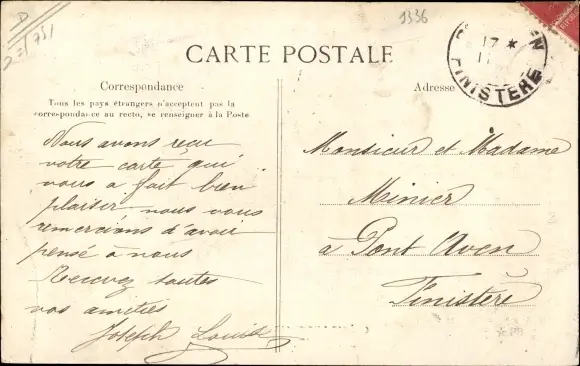 1336
D
CARTE POSTALE
17 *
11
FINISTÈRE
Correspondance
Tous les pays étrangers n'acceptent pas la
correspondance au recto, se renseigner à la Poste
Adresse
Nous avons reçu
votre carte qui
nous a fait bien
plaisir nous vous
remercions d'avoir
pensé à nous
Recevez toutes
vos amitiés
Joseph Louise
Monsieur et Madame
Minier
à Pont Aven
Finistère